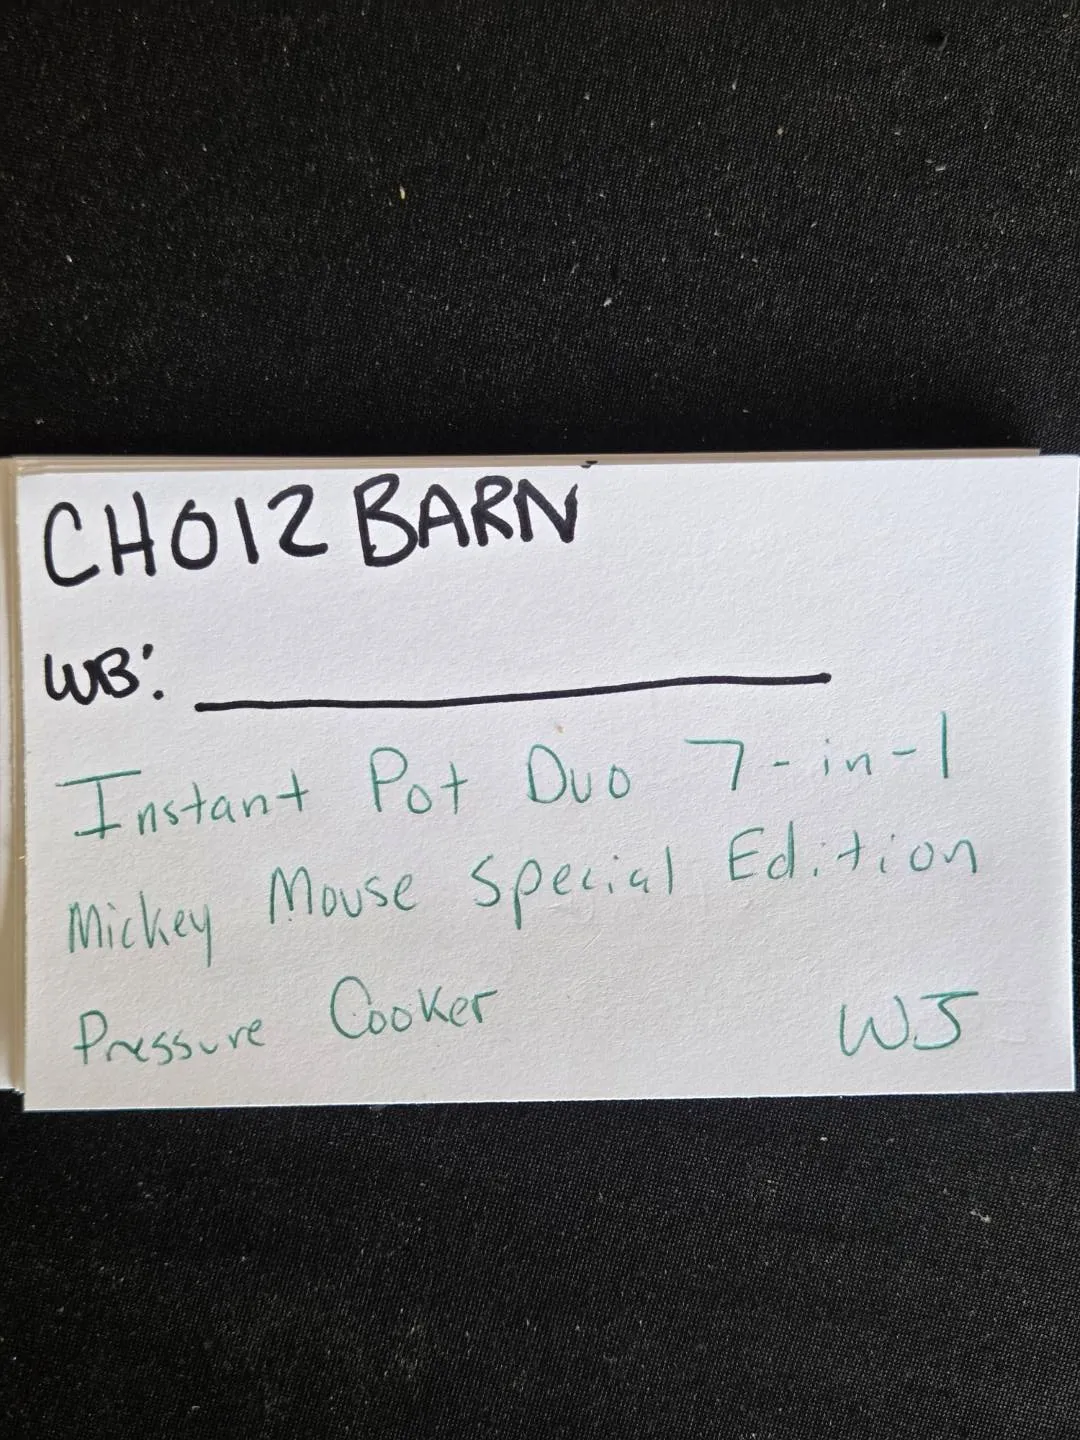 CHOIZ BARN
WB:
Instant Pot Duo 7-in-1
Mickey Mouse Special Edition
Pressure Cooker WJ